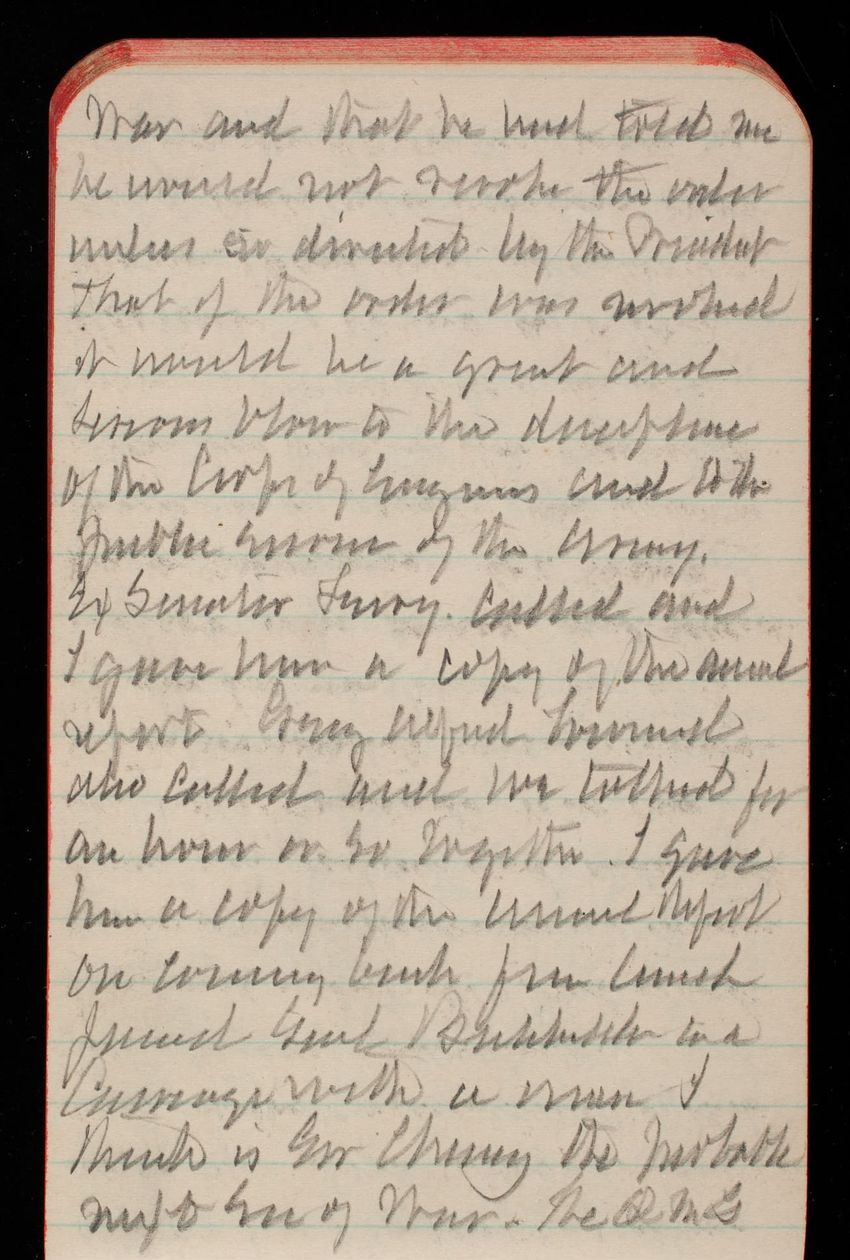 War and that he had told me
he would not revoke the order
unless so directed by the Presidet
That if the order was revoked
it would be a great and
serious blow to the discipline
of the Corps of Engineers and to the
public service of the Army.
Ex Senator Henry called and
I gave him a copy of the annual
report Genl Alfred
also called and we talked for
an hour or so together. I gave
him a copy of the annual report
On coming back from lunch
found Genl Batchelder in a
Carriage with a man I
think is Gov Cheney the probable
next Sec of War. The Q M G